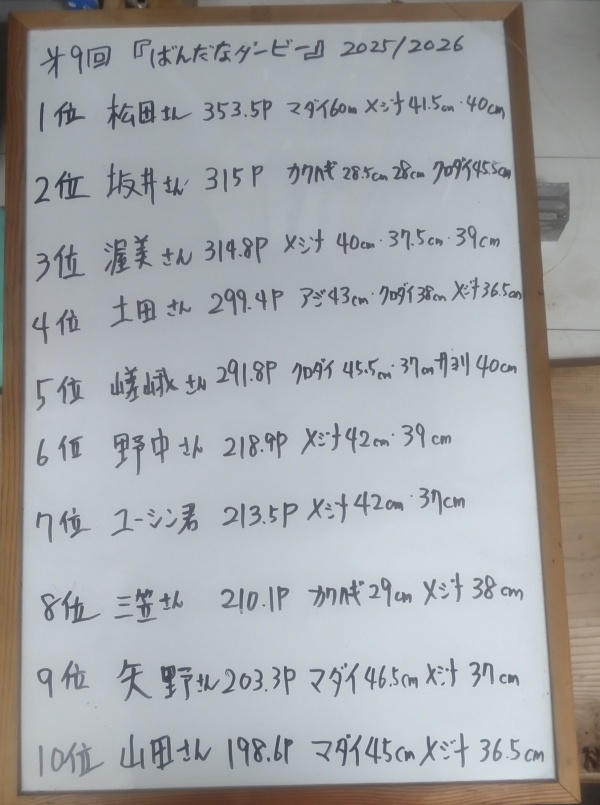 第9回 『ばんだなダービー』 2025/2026
1位 松田さん 353.5P マダイ60cm メジナ41.5cm・40cm
2位 坂井さん 315P カワハギ28.5cm 28cm クロダイ45.5cm
3位 渥美さん 314.8P メジナ 40cm・37.5cm・39cm
4位 土田さん 299.4P アジ43cm・クロダイ38cm メジナ36.5cm
5位 嵯峨さん 291.8P クロダイ 45.5cm・37cm サヨリ40cm
6位 野中さん 218.9P メジナ42cm・39cm
7位 ユーシン君 213.5P メジナ42cm・37cm
8位 三笠さん 210.1P カワハギ29cm メジナ38cm
9位 矢野さん 203.3P マダイ46.5cm メジナ37cm
10位 山田さん 198.6P マダイ45cm メジナ36.5cm